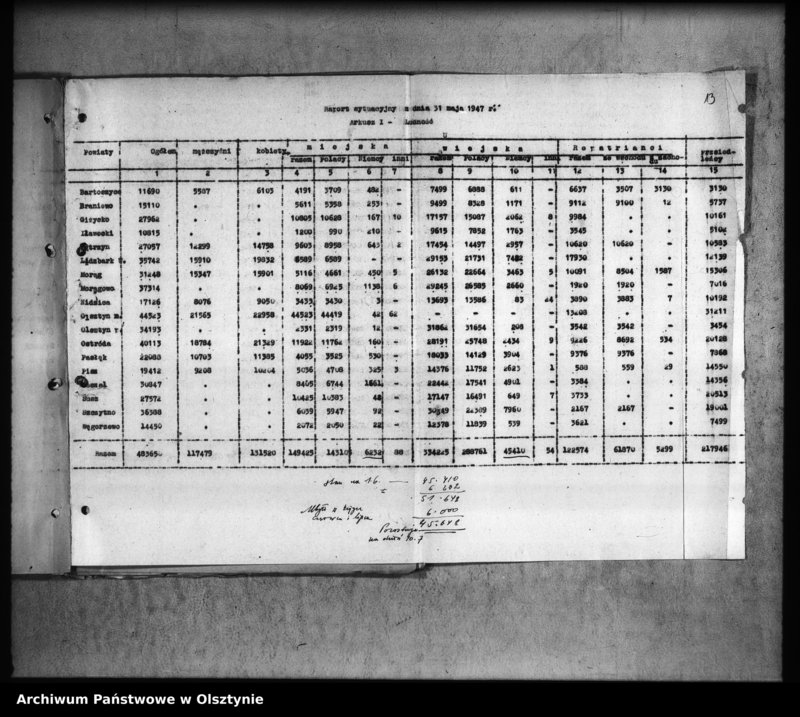 13
Raport sytuacyjny z dnia 31 maja 1947 r.
Arkusz I - Ludność
Powiaty Ogółem mężczyźni kobiety m i e j s k a w i e j s k a R e p a t r i a n c i przesied-
razem Polacy Niemcy inni razem Polacy Niemcy inni razem ze wschodu z zacho- leńcy
du
1 2 3 4 5 6 7 8 9 10 11 12 13 14 15
Bartoszyce 11690 5587 6103 4191 3709 482 - 7499 6888 611 - 6637 3507 3130 3130
Braniewo 15110 . . 5611 5358 253 - 9499 8328 1171 - 9112 9100 12 5737
Giżycko 27962 . . 10805 10628 167 10 17157 15087 2062 8 9984 . . 10161
Iławecki 10815 . . 1200 990 210 - 9615 7852 1763 - 3545 . . 5102
Kętrzyn 27057 12299 14758 9603 8958 643 2 17454 14497 2957 - 10620 10620 - 10583
Lidzbark W. 35742 15910 19832 6589 6589 - - 29153 21731 7422 - 17930 . . 12139
Morąg 31248 15347 15901 5116 4661 450 5 26132 22664 3463 5 10091 8504 1587 15306
Mrągowo 37314 . . 8069 6925 1138 6 29245 26585 2660 - 1920 1920 - 7016
Nidzica 17126 8076 9050 3433 3430 3 - 13693 13586 83 24 3890 3883 7 10192
Olsztyn m. 44523 21565 22958 44523 44419 42 62 - - - - 13208 . . 31211
Olsztyn p. 34193 . . 2331 2319 12 - 31862 31654 208 - 3542 3542 - 3454
Ostróda 40113 18784 21329 11922 11762 160 - 28191 25748 2434 9 9226 8692 534 20128
Pasłęk 22088 10703 11385 4055 3525 530 - 18033 14129 3904 - 9376 9376 - 7868
Pisz 19412 9208 10204 5036 4708 325 3 14376 11752 2623 1 588 559 29 14550
30847 . . 8405 6744 1661 - 22442 17541 4901 - 3384 . . 14356
Susz 27572 . . 10425 10383 42 - 17147 16491 649 7 3733 . . 20513
Szczytno 36388 . . 6039 5947 92 - 30349 22389 7960 - 2167 2167 - 19001
Węgorzewo 14450 . . 2072 2050 22 - 12378 11839 539 - 3621 . . 7499
Razem 483650 117479 131520 149425 14310 6232 88 334225 288761 45410 54 122574 61870 5299 217946
stan na 1.6. — 45.410
51.642
6.000
45.642
Pozostaje
na dzień 30.7
Archiwum Państwowe w Olsztynie